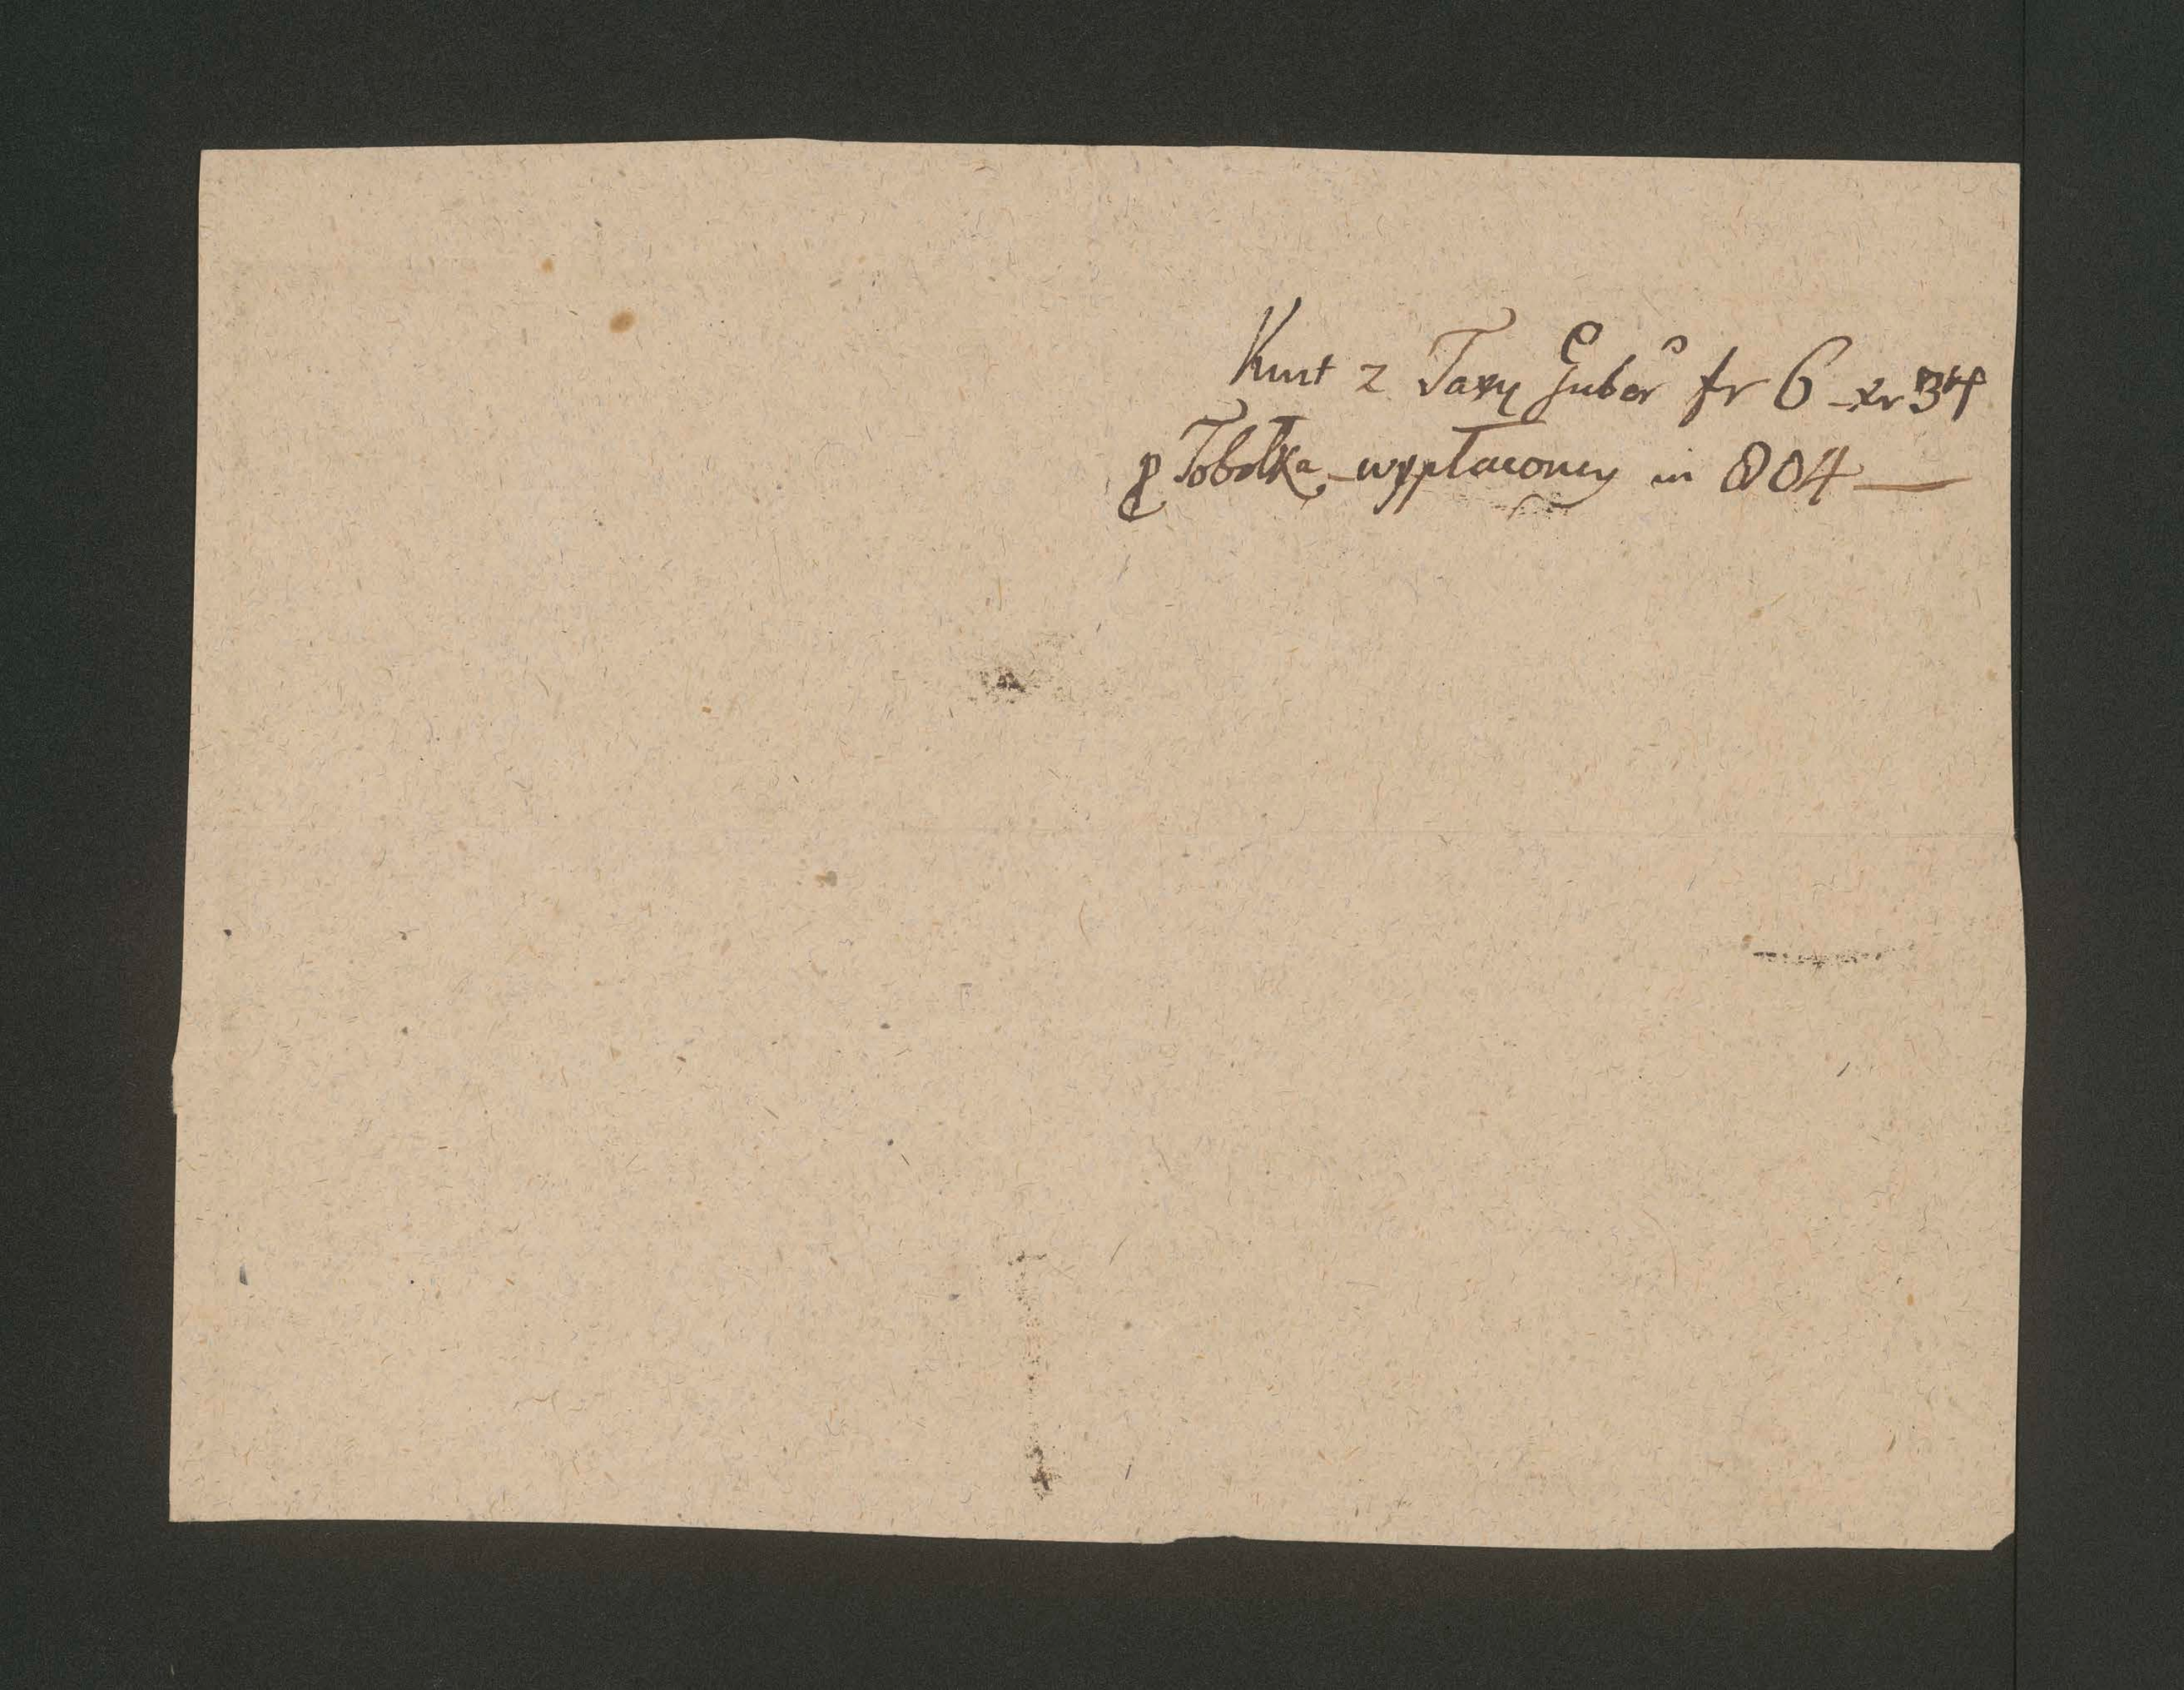 Kwit z Taxy Guber fr 6 _ xr 34
p Tobolka _ wypłacony in 804 —